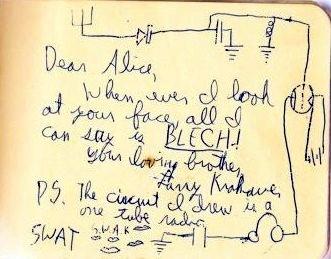 Dear Alice,
When ever I look
at your face, all I
can say is BLECH!
your loving brother,
Harry
P.S. The circuit I drew is a
one tube radio
SWAT S.W.A.K